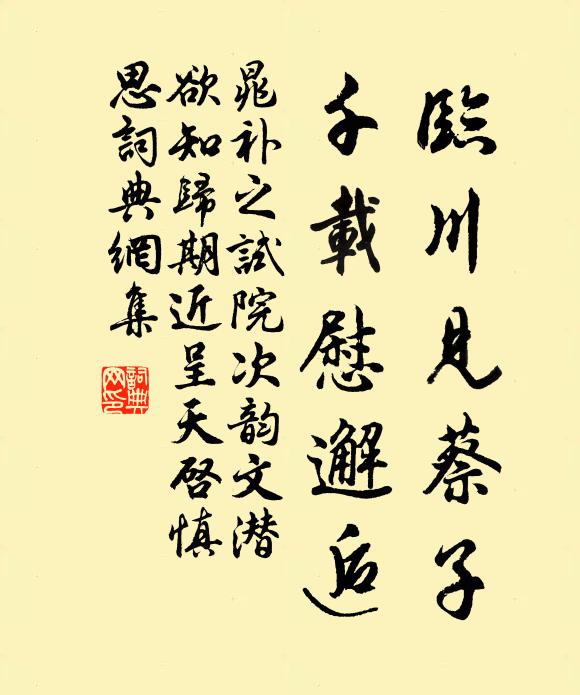 臨川見蔡子
千載慰邂逅
晁补之試院次韵文潜
欲知歸期近呈天启慎
思詞典網集
詞典
网印